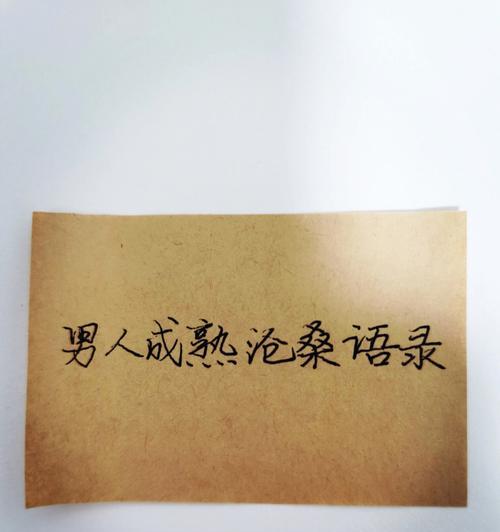 男人成熟沧桑语录